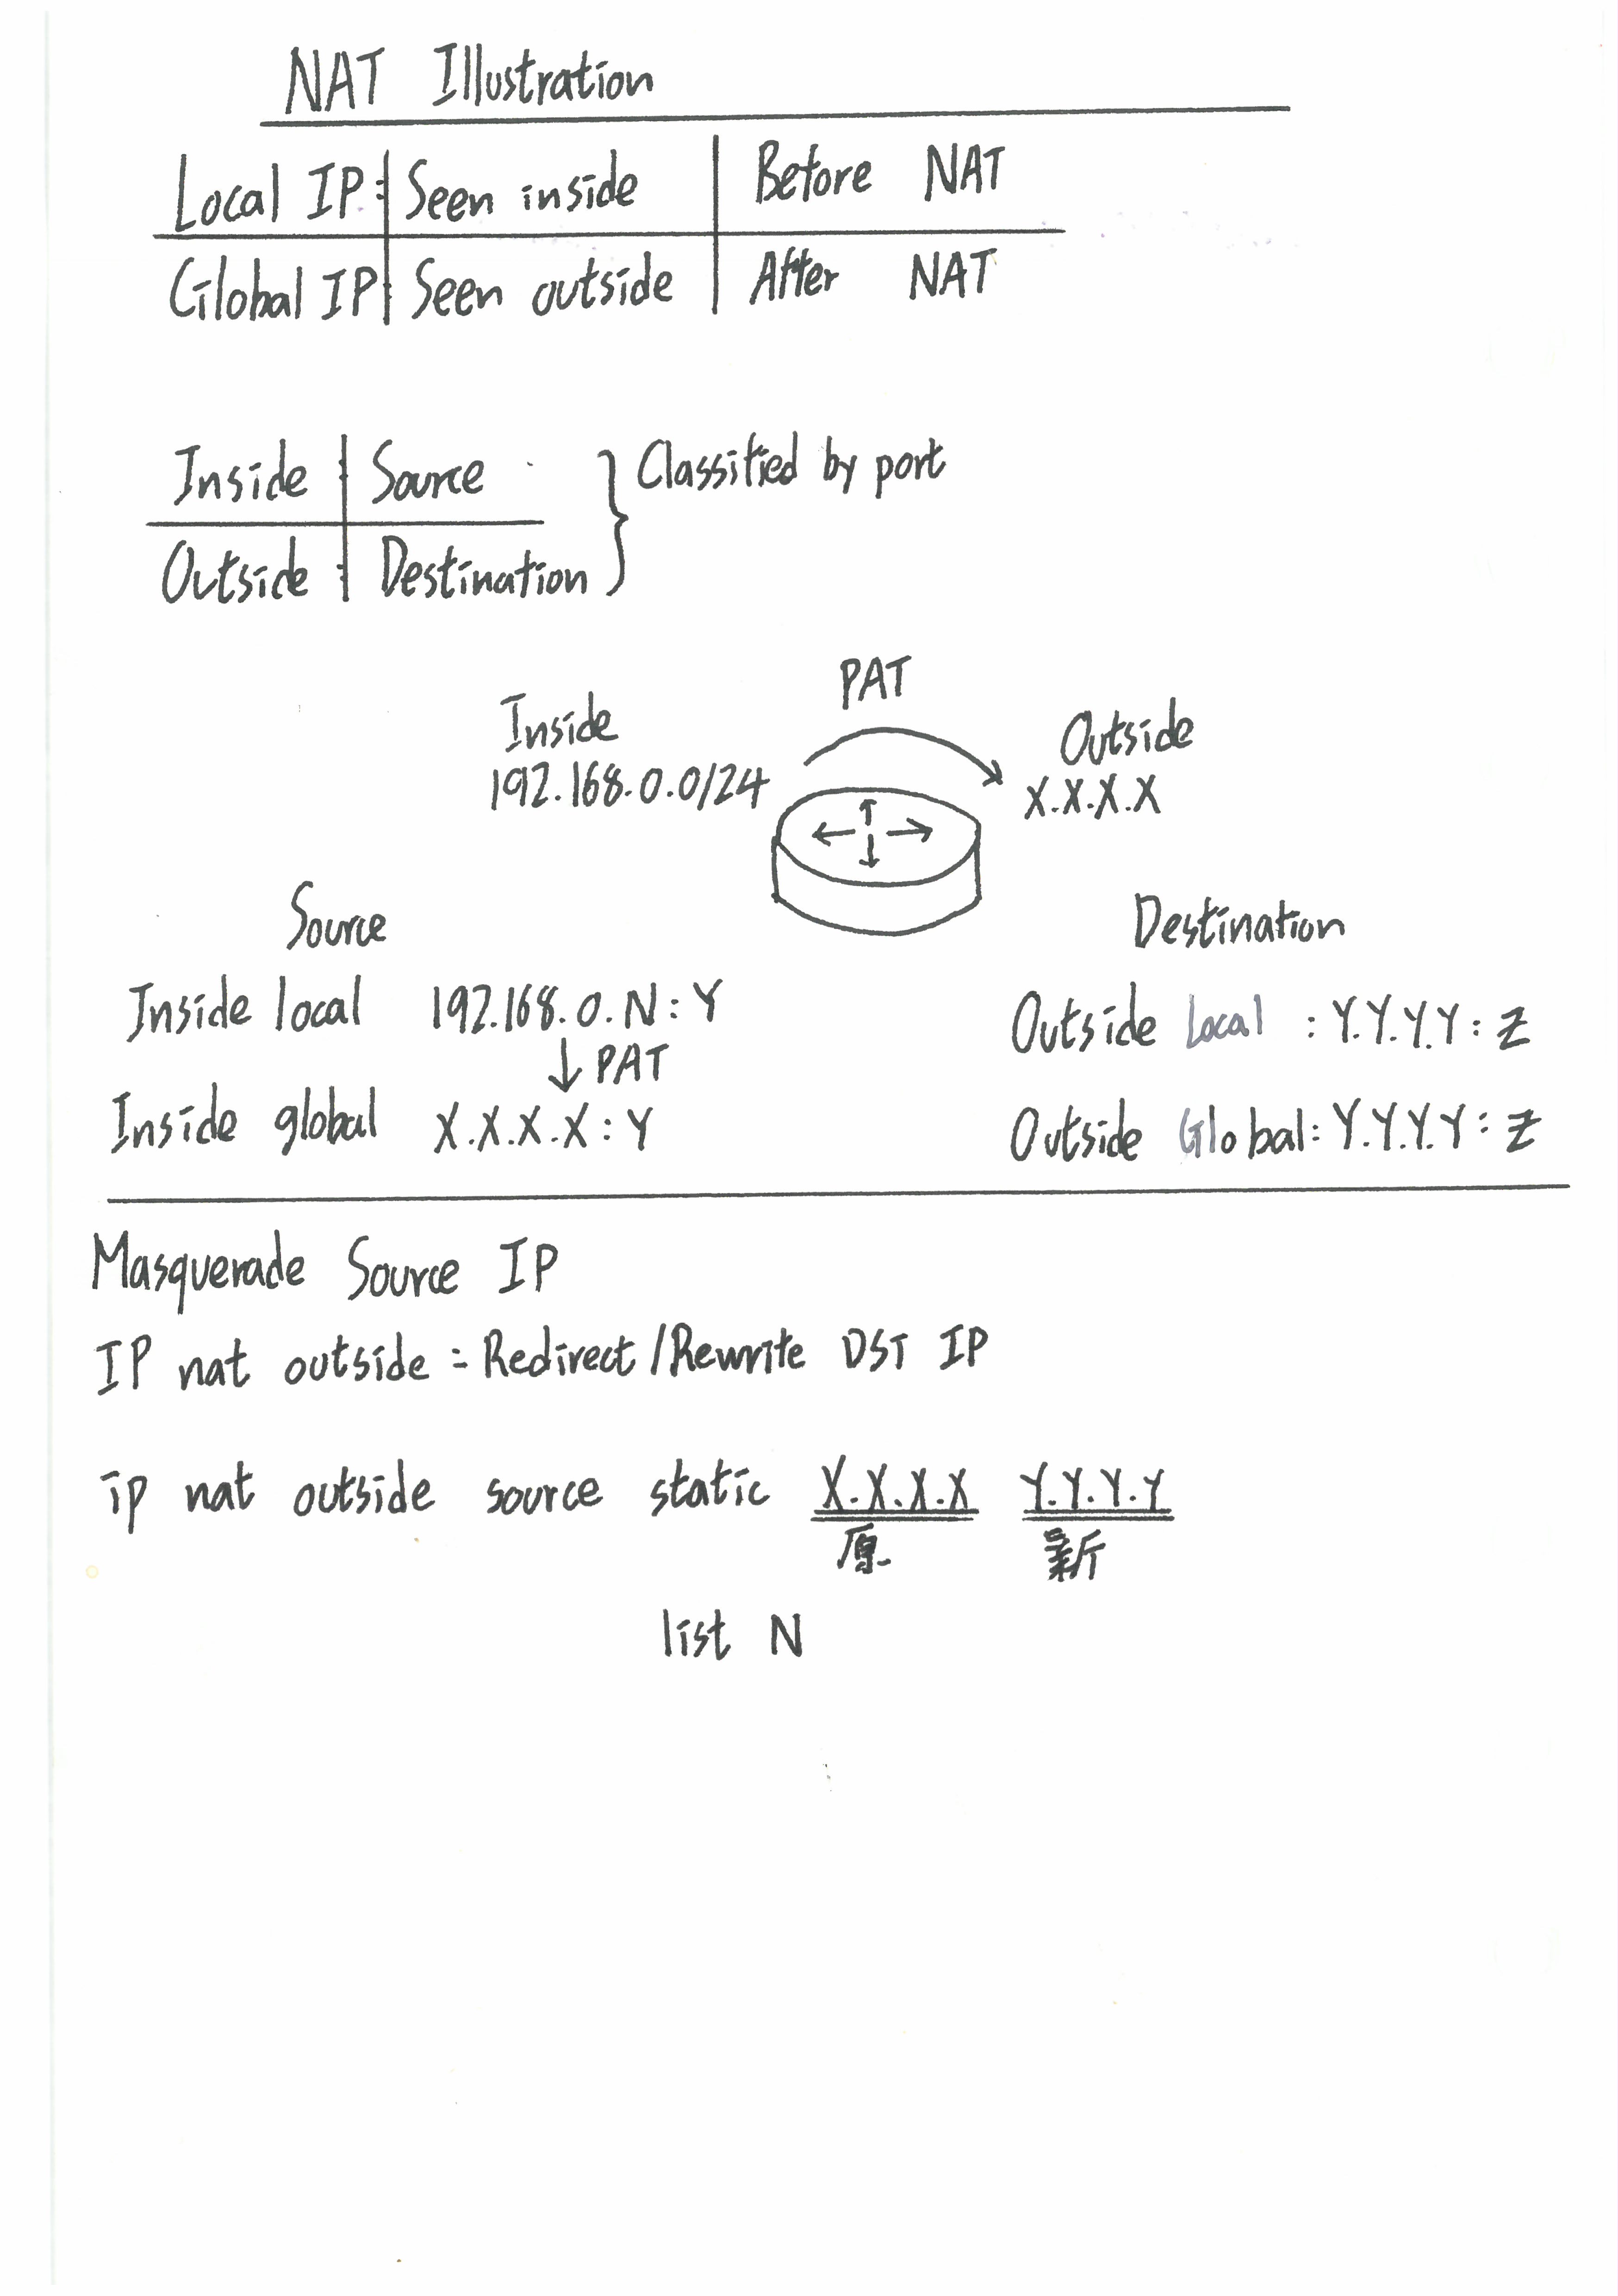 NAT Illustration
Local IP: Seen inside Before NAT
Global IP: Seen outside After NAT
Inside : Source
Outside : Destination
Classified by port
PAT
Inside
192.168.0.0/24
Outside
X.X.X.X
Source
Inside local 192.168.0.N:Y
↓ PAT
Inside global X.X.X.X:Y
Destination
Outside Local : Y.Y.Y.Y:Z
Outside Global: Y.Y.Y.Y:Z
Masquerade Source IP
IP nat outside = Redirect/Rewrite DST IP
ip nat outside source static X.X.X.X Y.Y.Y.Y
原 新
list N